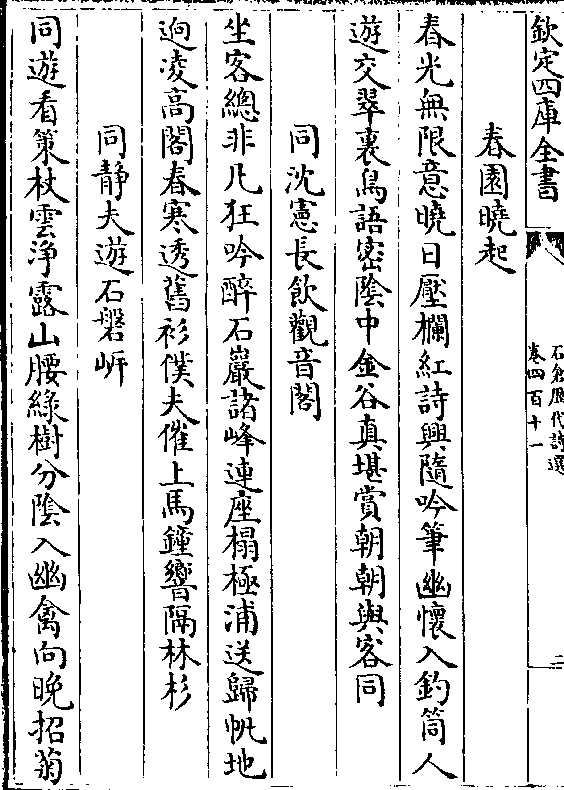 欽定四庫全書
石倉歷代詩選
卷四百十一
二
春園曉起
春光無限意曉日壓欄紅詩興隨吟筆幽懷入釣筒人
遊交翠裏鳥語密陰中金谷真堪賞朝朝與客同
同沈憲長飲觀音閣
坐客總非凡狂吟醉石巖諸峰連座榻極浦送歸帆地
逈凌高閣春寒透舊衫僕夫催上馬鐘響隔林杉
同靜夫遊石磐㟁
同遊看策杖雲淨露山腰綠樹分陰入幽禽向晚招菊